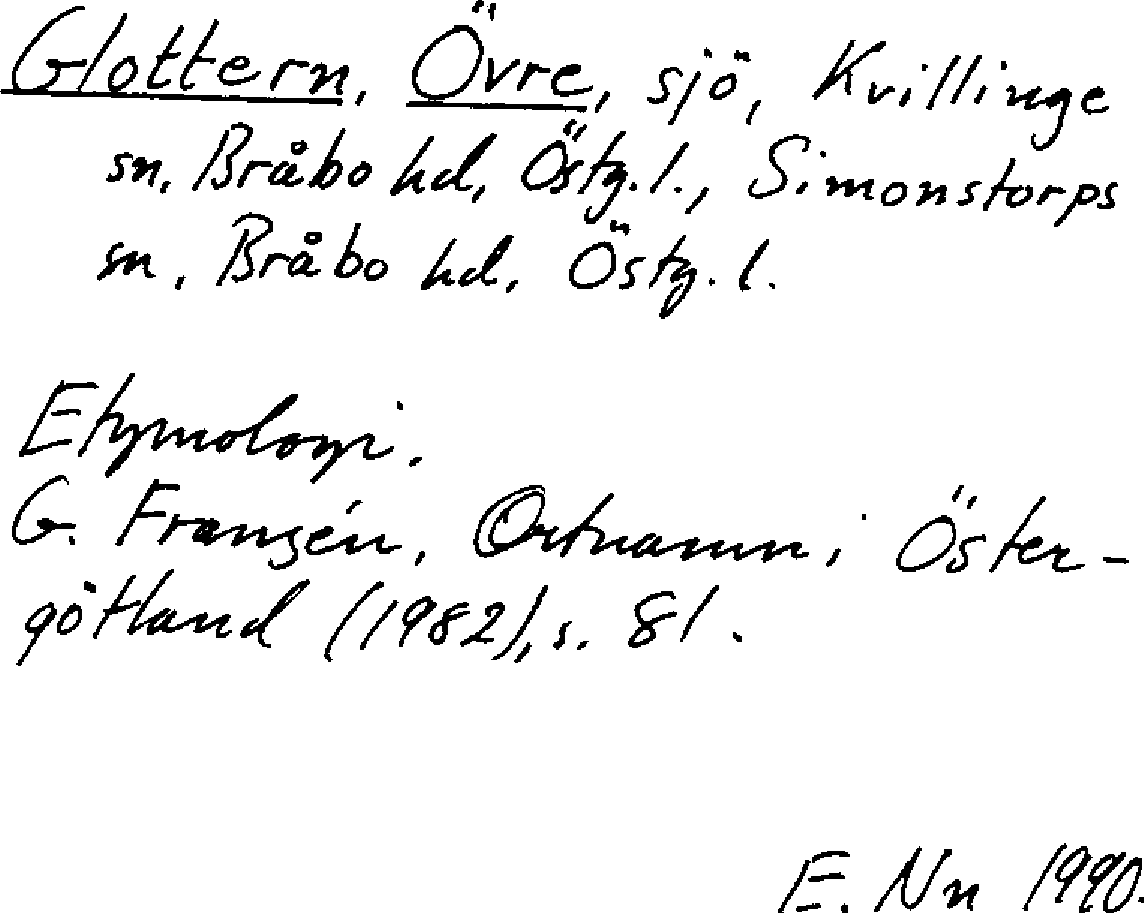 Glottern, Övre, sjö, Kvillinge
sn, Bråbo hd, Östg.l., Simonstorps
sn, Bråbo hd, Östg.l.
Etymologi.
G. Franzén, Ortnamn i Öster-
götland (1982), s. 81.
E. Nn 1990.